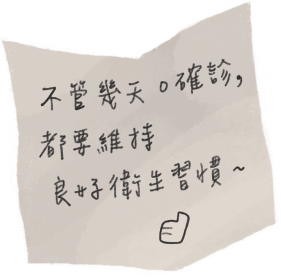 不管幾天0確診,
都要維持
良好衛生習慣~